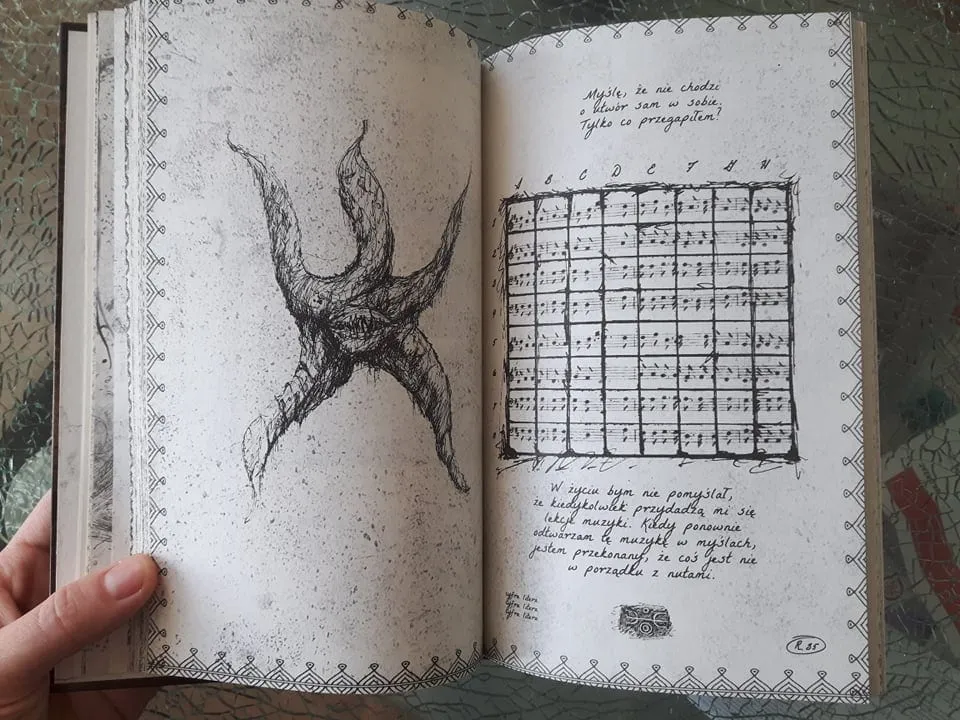 Myślę, że nie chodzi
o utwór sam w sobie.
Tylko co przegapiłem?
A B C D E F G H
1
2
3
4
5
6
7
8
W życiu bym nie pomyślał,
że kiedykolwiek przydadzą mi się
lekcje muzyki. Kiedy ponownie
odtwarzam tę muzykę w myślach,
jestem przekonany, że coś jest nie
w porządku z nutami.
cyfra litera
cyfra litera
cyfra litera
R. 35